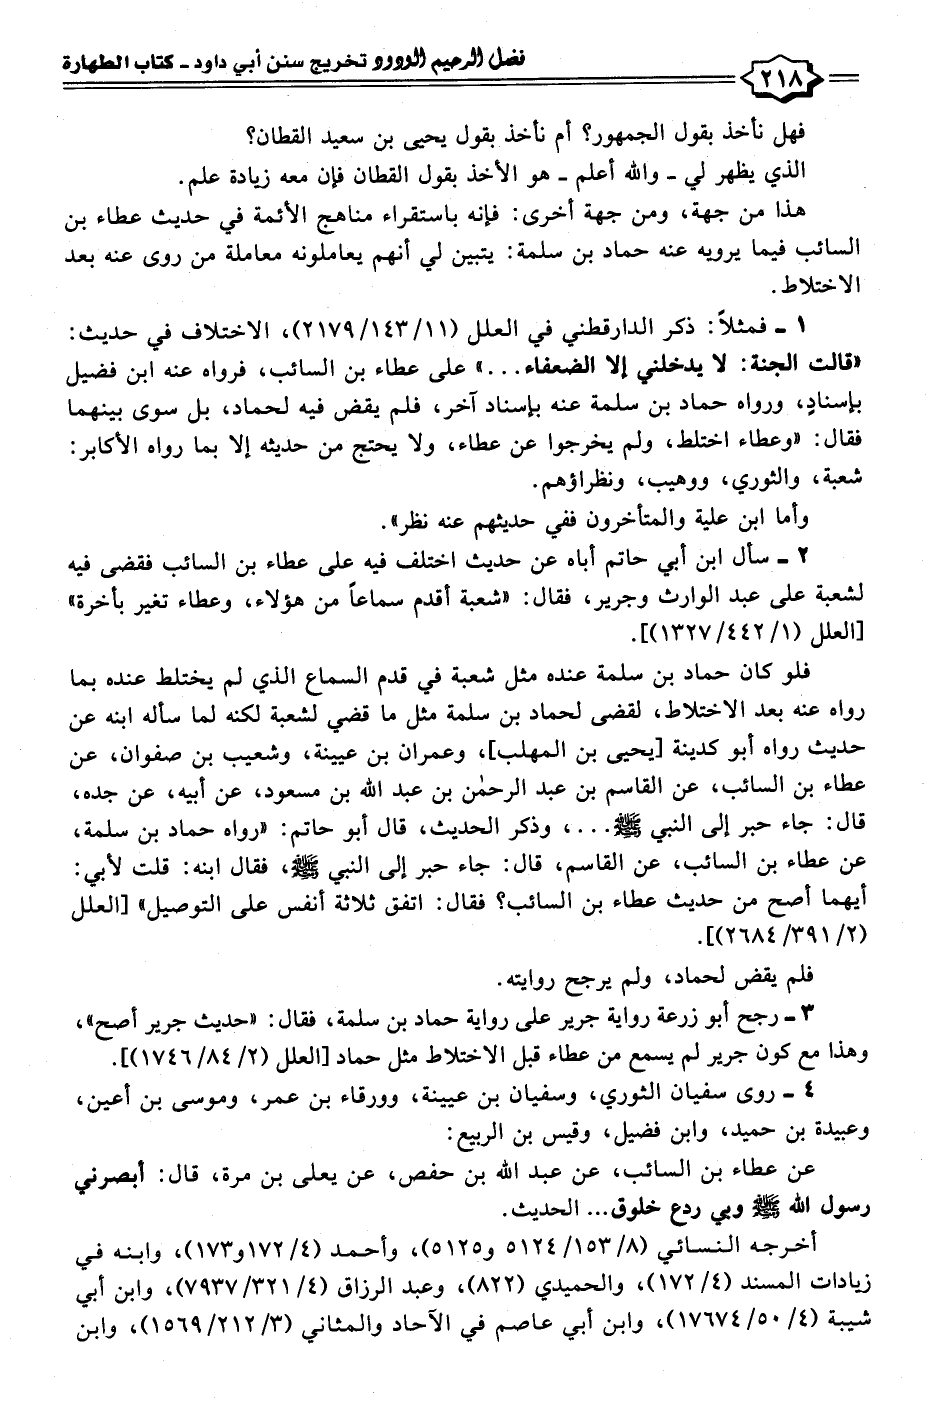 فضل الرحيم الودود تخريج سنن أبي داود - كتاب الطهارة
٢١٨
فهل نأخذ بقول الجمهور؟ أم نأخذ بقول يحيى بن سعيد القطان؟
الذي يظهر لي - والله أعلم - هو الأخذ بقول القطان فإن معه زيادة علم.
هذا من جهة، ومن جهة أخرى: فإنه باستقراء مناهج الأئمة في حديث عطاء بن
السائب فيما يرويه عنه حماد بن سلمة: يتبين لي أنهم يعاملونه معاملة من روى عنه بعد
الاختلاط.
١ - فمثلاً: ذكر الدارقطني في العلل (١١/ ١٤٣/ ٢١٧٩)، الاختلاف في حديث:
«قالت الجنة: لا يدخلني إلا الضعفاء...» على عطاء بن السائب، فرواه عنه ابن فضيل
بإسنادٍ، ورواه حماد بن سلمة عنه بإسناد آخر، فلم يقض فيه لحماد، بل سوى بينهما
فقال: «وعطاء اختلط، ولم يخرجوا عن عطاء، ولا يحتج من حديثه إلا بما رواه الأكابر:
شعبة، والثوري، ووهيب، ونظراؤهم.
وأما ابن علية والمتأخرون ففي حديثهم عنه نظر».
٢ - سأل ابن أبي حاتم أباه عن حديث اختلف فيه على عطاء بن السائب فقضى فيه
لشعبة على عبد الوارث وجرير، فقال: «شعبة أقدم سماعاً من هؤلاء، وعطاء تغير بأخرة»
[العلل (١/ ٤٤٢/ ١٣٢٧)].
فلو كان حماد بن سلمة عنده مثل شعبة في قدم السماع الذي لم يختلط عنده بما
رواه عنه بعد الاختلاط، لقضى لحماد بن سلمة مثل ما قضي لشعبة لكنه لما سأله ابنه عن
حديث رواه أبو كدينة [يحيى بن المهلب]، وعمران بن عيينة، وشعيب بن صفوان، عن
عطاء بن السائب، عن القاسم بن عبد الرحمٰن بن عبد الله بن مسعود، عن أبيه، عن جده،
قال: جاء حبر إلى النبي ﷺ...، وذكر الحديث، قال أبو حاتم: «رواه حماد بن سلمة،
عن عطاء بن السائب، عن القاسم، قال: جاء حبر إلى النبي ﷺ، فقال ابنه: قلت لأبي:
أيهما أصح من حديث عطاء بن السائب؟ فقال: اتفق ثلاثة أنفس على التوصيل» [العلل
(٢/ ٣٩١/ ٢٦٨٤)].
فلم يقض لحماد، ولم يرجح روايته.
٣ - رجح أبو زرعة رواية جرير على رواية حماد بن سلمة، فقال: «حديث جرير أصح»،
وهذا مع كون جرير لم يسمع من عطاء قبل الاختلاط مثل حماد [العلل (٢/ ٨٤/ ١٧٤٦)].
٤ - روى سفيان الثوري، وسفيان بن عيينة، وورقاء بن عمر، وموسى بن أعين،
وعبيدة بن حميد، وابن فضيل، وقيس بن الربيع:
عن عطاء بن السائب، عن عبد الله بن حفص، عن يعلى بن مرة، قال: أبصرني
رسول الله ﷺ وبي ردع خلوق... الحديث.
أخرجه النسائي (٨/ ١٥٣/ ٥١٢٤ و٥١٢٥)، وأحمد (٤/ ١٧٢ و١٧٣)، وابنه في
زيادات المسند (٤/ ١٧٢)، والحميدي (٨٢٢)، وعبد الرزاق (٤/ ٣٢١/ ٧٩٣٧)، وابن أبي
شيبة (٤/ ٥٠/ ١٧٦٧٤)، وابن أبي عاصم في الآحاد والمثاني (٣/ ٢١٢/ ١٥٦٩)، وابن